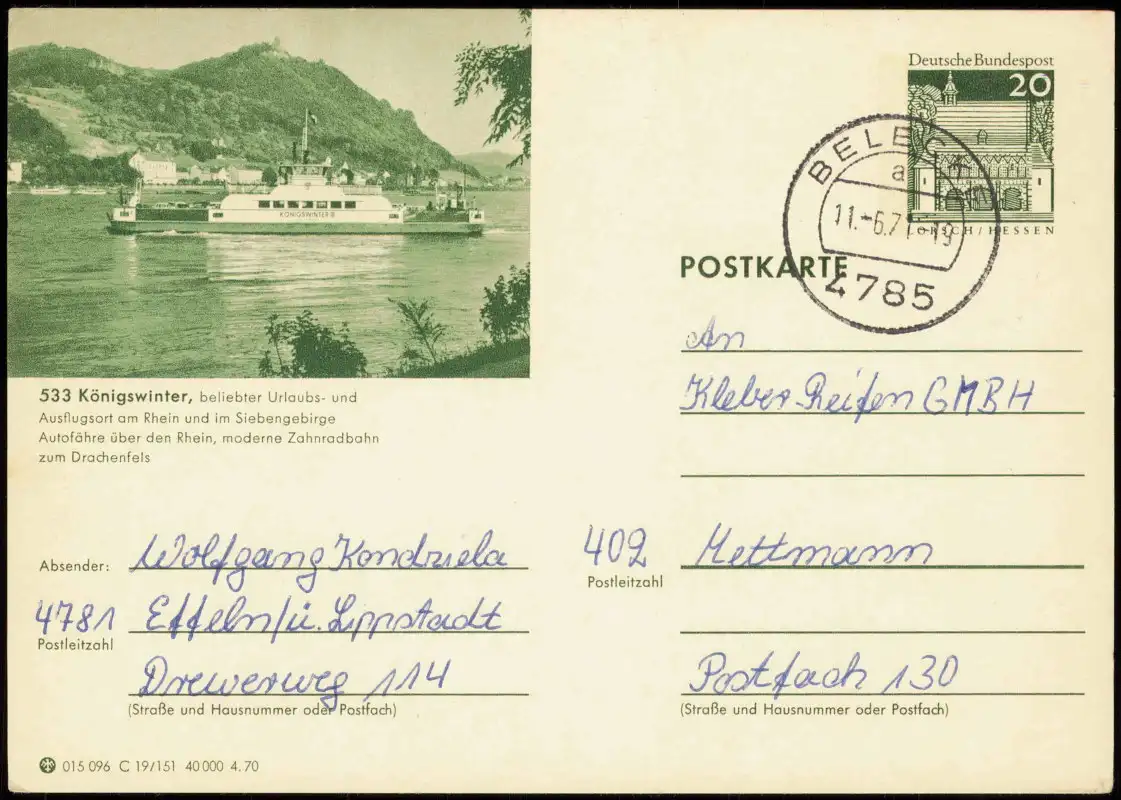 KÖNIGSWINTER
533 Königswinter, beliebter Urlaubs- und
Ausflugsort am Rhein und im Siebengebirge
Autofähre über den Rhein, moderne Zahnradbahn
zum Drachenfels
Deutsche Bundespost
20
LORSCH/HESSEN
BELECKE
a
11.-6.71-19
4785
POSTKARTE
An
Kleber Reifen GMBH
402 Mettmann
Postleitzahl
Postfach 130
(Straße und Hausnummer oder Postfach)
Absender: Wolfgang Kondziela
4781 Effeln/ü. Lippstadt
Postleitzahl
Drewerweg 114
(Straße und Hausnummer oder Postfach)
015 096 C 19/151 40 000 4.70